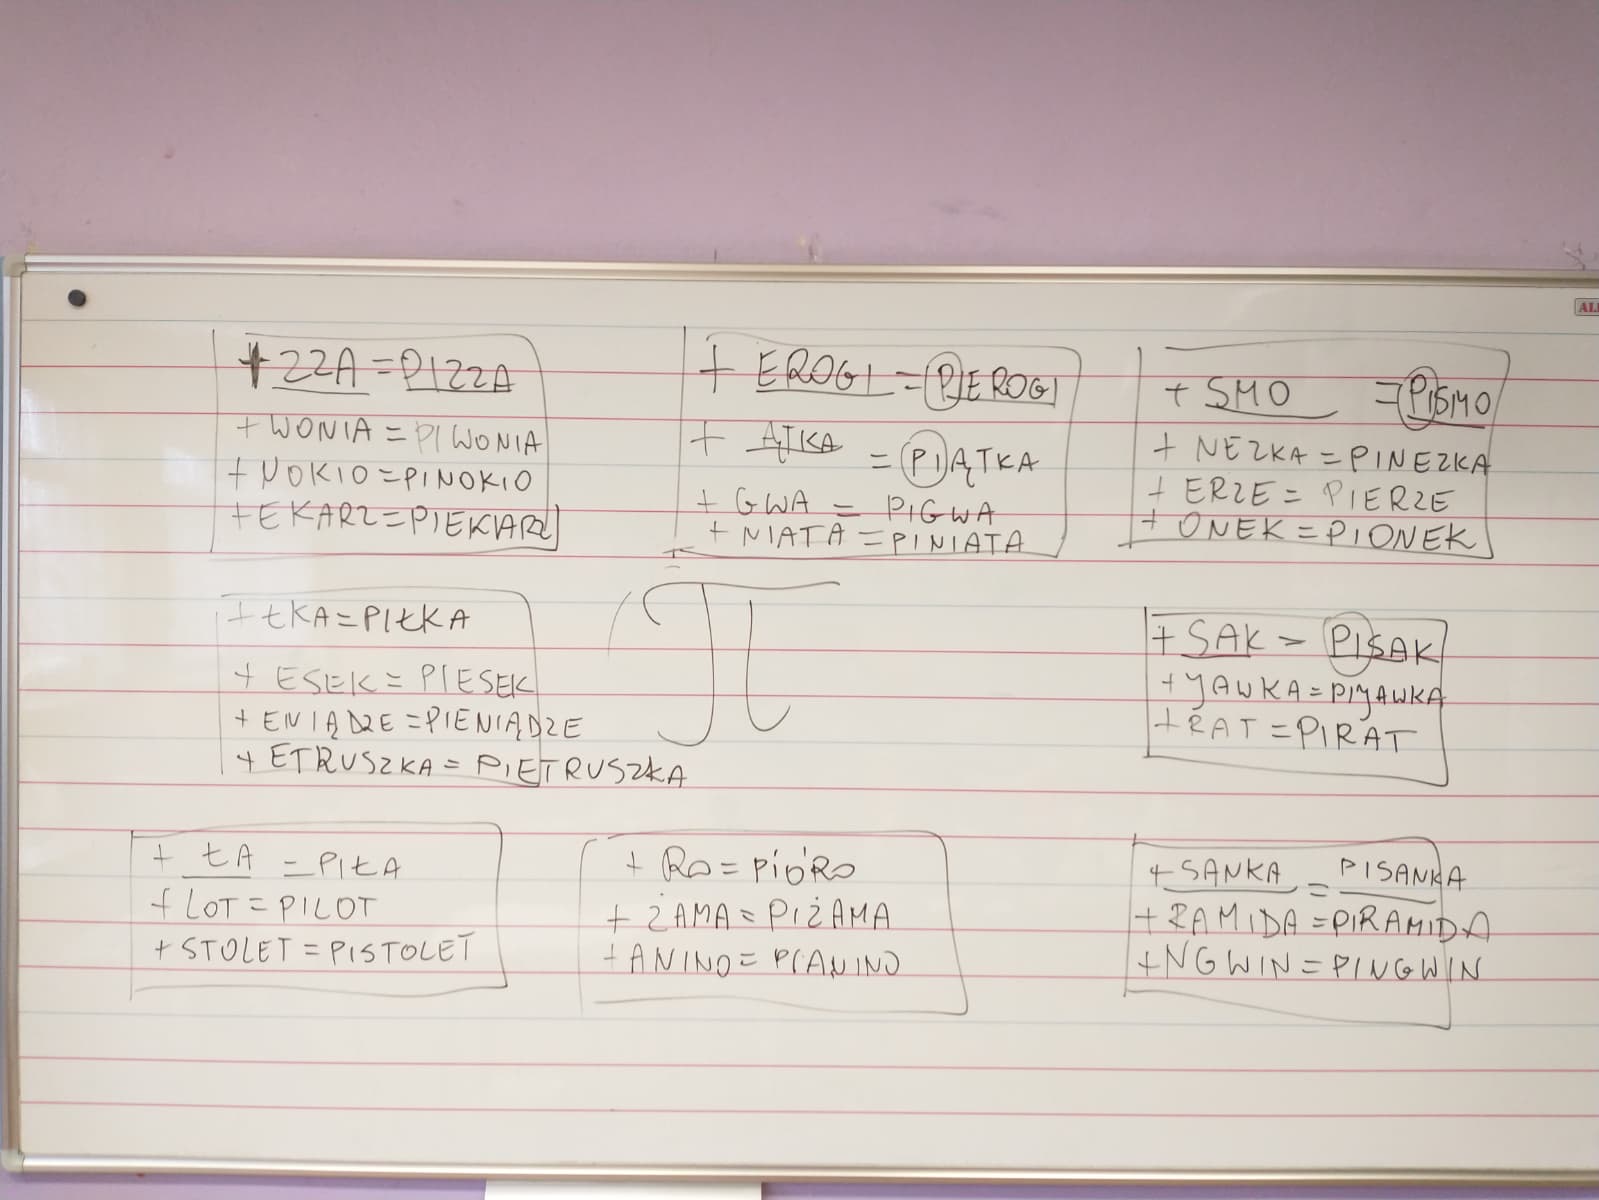 + ZZA = PIZZA
+ WONIA = PIWONIA
+ NOKIO = PINOKIO
+ EKARZ = PIEKARZ
+ EROGI = PIEROGI
+ ĄTKA = PIĄTKA
+ GWA = PIGWA
+ NIATA = PINIATA
+ SMO = PISMO
+ NEZKA = PINEZKA
+ ERZE = PIERZE
+ ONEK = PIONEK
+ ŁKA = PIŁKA
+ ESEK = PIESEK
+ ENIĄDZE = PIENIĄDZE
+ ETRUSZKA = PIETRUSZKA
π
+ SAK = PISAK
+ JAWKA = PIJAWKA
+ RAT = PIRAT
+ ŁA = PIŁA
+ LOT = PILOT
+ STOLET = PISTOLET
+ RO = PIÓRO
+ ŻAMA = PIŻAMA
+ ANINO = PIANINO
+ SANKA = PISANKA
+ RAMIDA = PIRAMIDA
+ NGWIN = PINGWIN